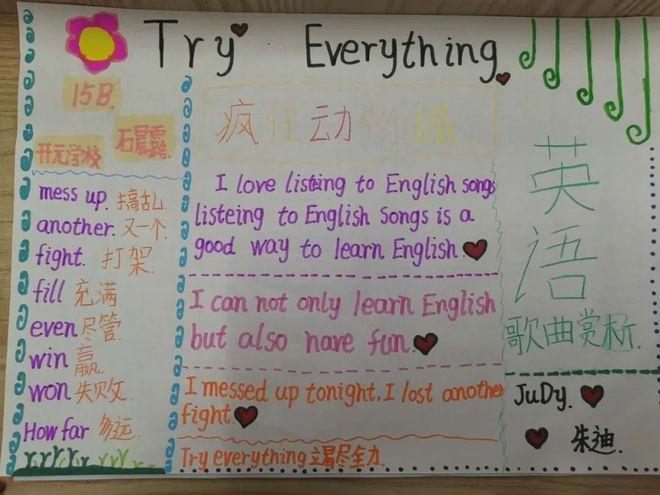 Try Everything
15B.
石晨露.
开元学校
mess up. 搞乱.
another. 又一个.
fight. 打架.
fill 充满
even 尽管.
win 赢.
won 失败.
How far 多远.
疯狂动物城
I love listeing to English songs
listeing to English Songs is a
good way to learn English.
I can not only learn English
but also have fun.
I messed up tonight. I lost another
fight.
Try everything 竭尽全力.
英
语
歌曲赏析.
JuDy.
朱迪.